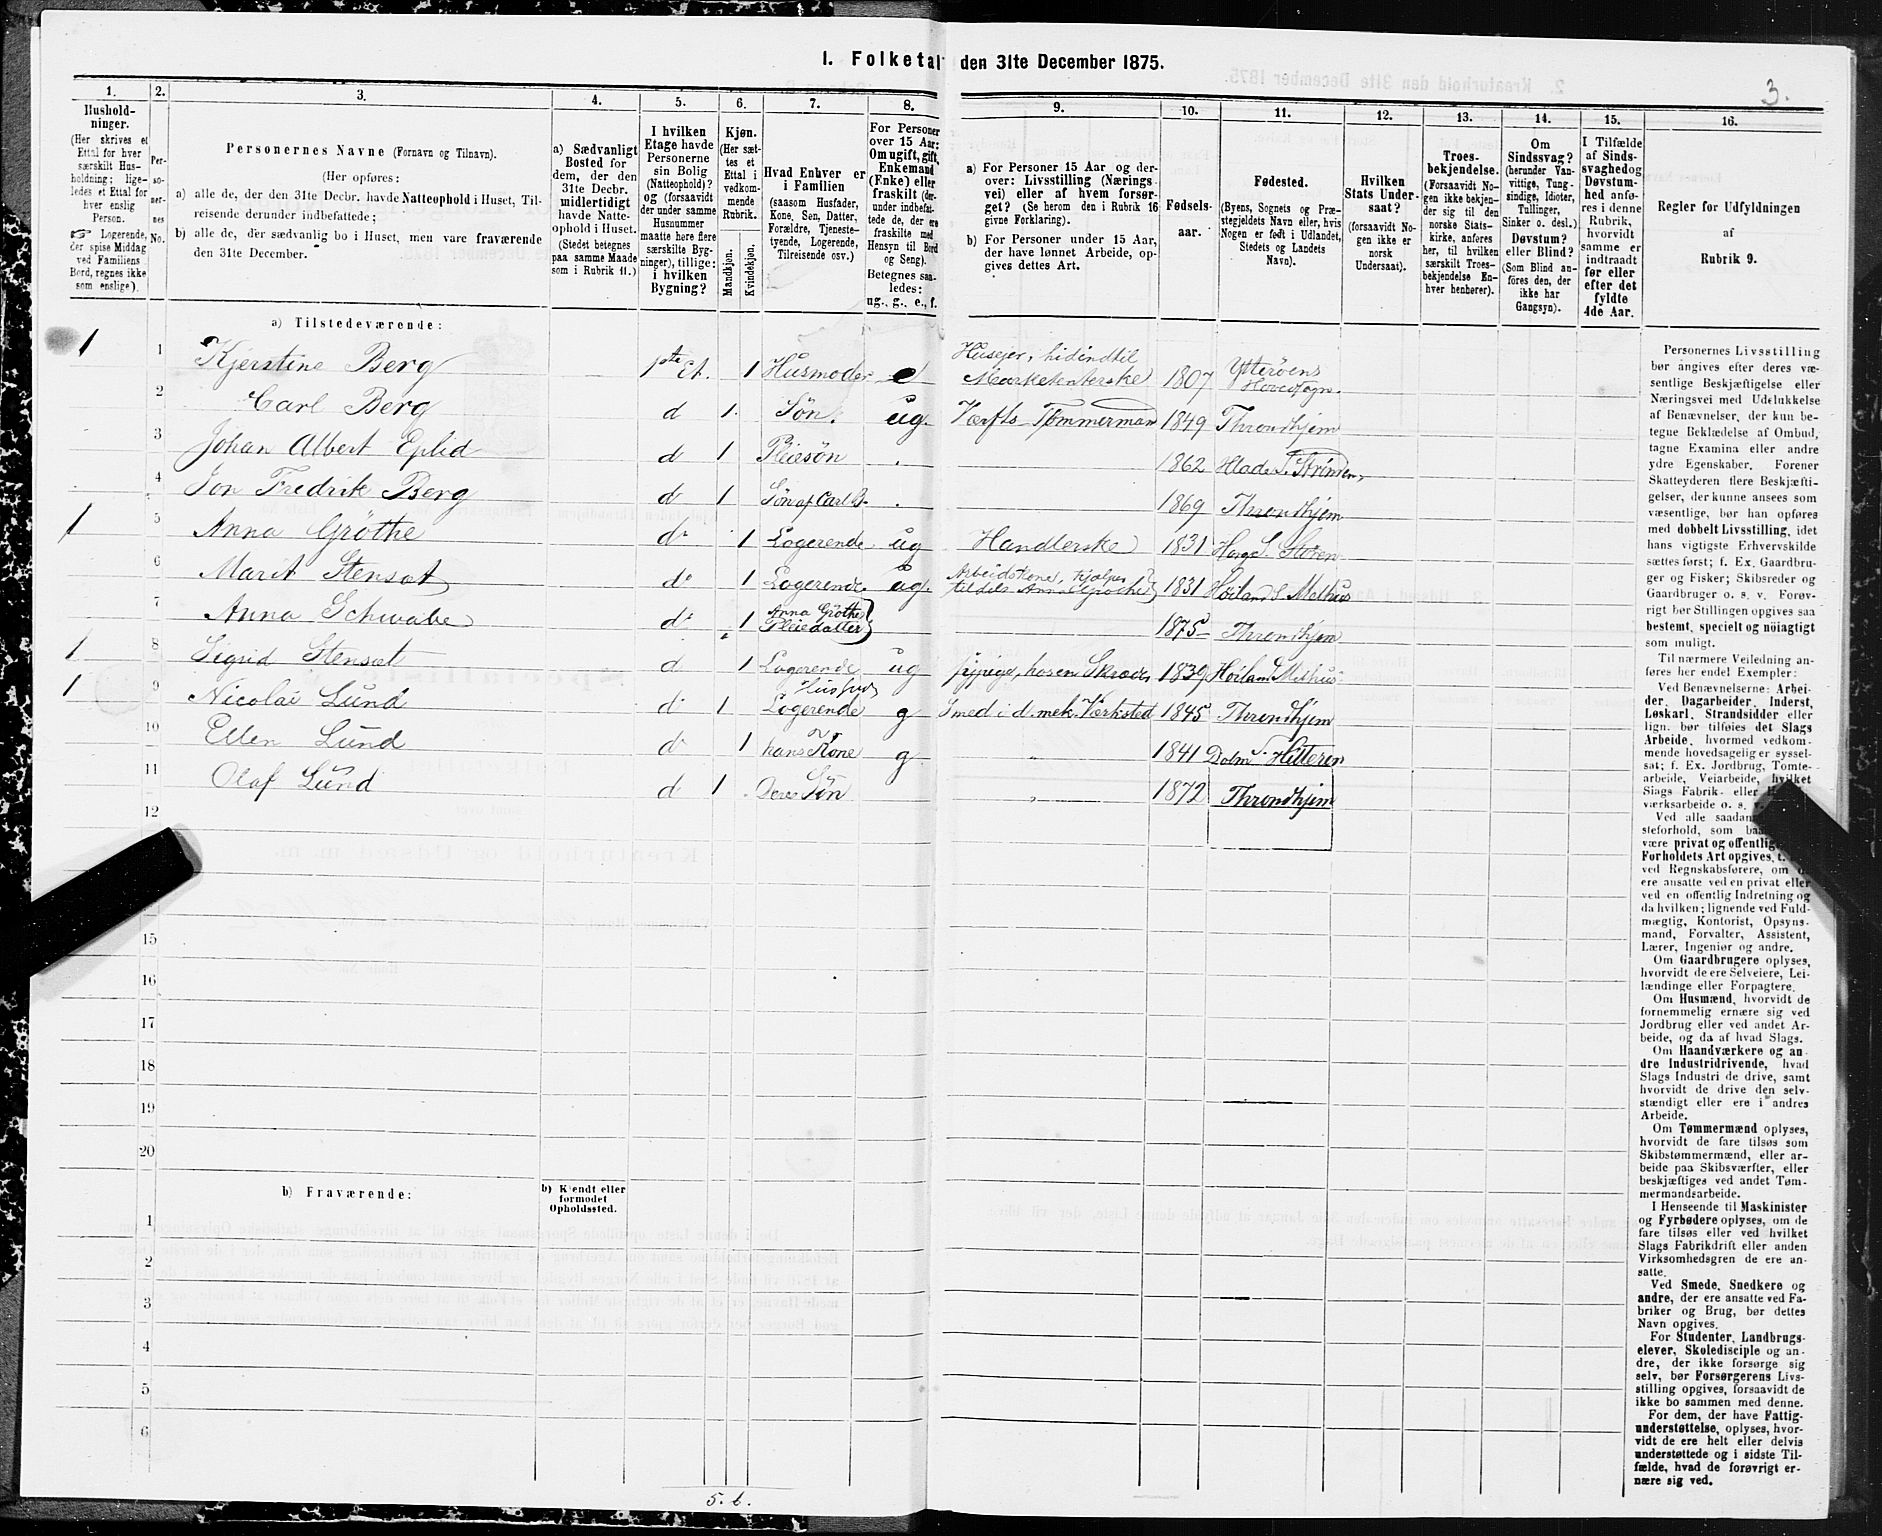 I. Folketal den 31te December 1875.
3.
1.
Husholdninger.
(Her skrives et
Ettal for hver
særskilt Husholdning;
ligeledes et Ettal for
hver enslig
Person.
☞ Logerende,
der spise Middag
ved Familiens
Bord, regnes ikke
som enslige).
2.
Personernes
No.
3.
Personernes Navne (Fornavn og Tilnavn).
(Her opføres:
a) alle de, der den 31te Decbr. havde Natteophold i Huset, Tilreisende
derunder indbefattede;
b) alle de, der sædvanlig bo i Huset, men vare fraværende
den 31te December.
4.
a) Sædvanligt
Bosted for
dem, der den
31te Decbr.
midlertidigt
havde Natteophold
i Huset.
(Stedet betegnes
paa samme Maade
som i Rubrik 11.)
5.
I hvilken
Etage havde
Personerne
sin Bolig
(Natteophold)?
og (forsaavidt
der under samme
Husnummer
maatte høre flere
særskilte Bygninger),
tillige:
i hvilken
Bygning?
6.
Kjøn.
(Her sættes
et
Ettal i
vedkommende
Rubrik.
Mandkjøn.
Kvindekjøn.
7.
Hvad Enhver er
i Familien
(saasom Husfader,
Kone, Søn, Datter,
Forældre, Tjenestetyende,
Logerende,
Tilreisende osv.)
8.
For Personer
over 15 Aar:
Om ugift, gift,
Enkemand
(Enke) eller
fraskilt (derunder
indbefattede
de, der ere
fraskilte med
Hensyn til Bord
og Seng).
Betegnes saaledes:
ug., g., e., f.
9.
a) For Personer 15 Aar og derover:
Livsstilling (Næringsvei)
eller af hvem forsørget?
(Se herom den i Rubrik 16
givne Forklaring).
b) For Personer under 15 Aar,
der have lønnet Arbeide, opgives
dettes Art.
10.
Fødselsaar.
11.
Fødested.
(Byens, Sognets og Præstegjeldets
Navn eller, hvis
Nogen er født i Udlandet,
Stedets og Landets
Navn).
12.
Hvilken
Stats Undersaat?
(forsaavidt Nogen
ikke er
norsk
Undersaat).
13.
Troesbekjendelse.
(Forsaavidt Nogen
ikke bekjender
sig til den
norske Statskirke,
anføres
her, til hvilken
særskilt Troesbekjendelse
Enhver
henhører).
14.
Om
Sindssvag?
(herunder Vanvittige,
Tungsindige,
Idioter,
Tullinger,
Sinker o. desl.)
Døvstum?
eller Blind?
(Som Blind anføres
den, der
ikke har
Gangsyn).
15.
I Tilfælde
af Sindssvaghed
og
Døvstumhed
anføres
i denne
Rubrik,
hvorvidt
samme er
indtraadt
før eller
efter det
fyldte
4de Aar.
16.
Regler for Udfyldningen
af
Rubrik 9.
a) Tilstedeværende:
1 1 Kjerstine Berg 1ste Et. 1 Husmoder e Huseier, hidindtil Marketenterske 1807 Ytterøens Hovedsogn.
2 Carl Berg d 1. Søn. ug. Værfts Tømmermand 1849 Throndhjem
3 Johan Albert Eplid d 1 Pleiesøn . 1862 Hlade S. Strinden
4 Jon Fredrik Berg d 1 Søn af Carl B. . 1869 Throndhjem
1 5 Anna Grøthe do 1 Logerende ug Handlerske 1831 Horg S. Støren
6 Marit Stensæt do 1 Logerende ug. Arbeidskone, hjælper tildels Anna Grøthe 1831 Høiland S Melhus
7 Anna Schwabe do 1 Anna Grøthes Pleiedatter 1875 Throndhjem
1 8 Sigrid Stensæt d 1 Logerende ug sypige, hos en Skræder 1839 Høiland Melhus
1 9 Nicolai Lund do 1 Husfad Logerende g Smed i d. mek. Værksted 1845 Throndhjem
10 Ellen Lund do 1 hans Kone g " 1841 Dolm S. Hitteren
11 Olaf Lund d 1 Deres Søn " 1872 Throndhjem
12
15
16
17
18
19
20
b) Fraværende:
b) Kjendt eller
formodet
Opholdssted.
1
2
3
4
5
6
5. 6.
Personernes Livsstilling
bør angives efter deres væsentlige
Beskjæftigelse eller
Næringsvei med Udelukkelse
af Benævnelser, der kun betegne
Beklædelse af Ombud,
tagne Examina eller andre
ydre Egenskaber. Forener
Skatteyderen flere Beskjæftigelser,
der kunne ansees som
væsentlige, bør han opføres
med dobbelt Livsstilling, idet
hans vigtigste Erhvervskilde
sættes først; f. Ex. Gaardbruger
og Fisker; Skibsreder og
Gaardbruger o. s. v. Forøvrigt
bør Stillingen opgives saa
bestemt, specielt og nöiagtigt
som muligt.
Til nærmere Veiledning anføres
her endel Exempler:
Ved Benævnelserne: Arbeider,
Dagarbeider, Inderst,
Løskarl, Strandsidder eller
lign. bør tilføies det Slags
Arbeide, hvormed vedkommende
hovedsagelig er sysselsat;
f. Ex. Jordbrug, Tomtearbeide,
Veiarbeide, hvilket
Slags Fabrik- eller
værksarbeide o. s. v.
Ved alle saadan
steforhold, som
være privat og offentlig
Forholdets Art opgives,
ved Regnskabsførere, om
ere ansatte ved en privat eller
ved en offentlig Indretning og
da hvilken; lignende ved Fuldmægtig,
Kontorist, Opsynsmand,
Forvalter, Assistent,
Lærer, Ingeniør og andre.
Om Gaardbrugere oplyses,
hvorvidt de ere Selveiere, Leilændinge
eller Forpagtere.
Om Husmænd, hvorvidt de
fornemmelig ernære sig ved
Jordbrug eller ved andet Arbeide,
og da af hvad Slags.
Om Haandværkere og andre
Industridrivende, hvad
Slags Industri de drive, samt
hvorvidt de drive den selvstændigt
eller ere i andres
Arbeide.
Om Tømmermænd oplyses,
hvorvidt de fare tilsøs som
Skibstømmermænd, eller arbeide
paa Skibsværfter, eller
beskjæftiges ved andet Tømmermandsarbeide.
I Henseende til Maskinister
og Fyrbødere oplyses, om de
fare tilsøs eller ved hvilket
Slags Fabrikdrift eller anden
Virksomhedsgren de ere ansatte.
Ved Smede, Snedkere og
andre, der ere ansatte ved Fabriker
og Brug, bør dettes
Navn opgives.
For Studenter, Landbrugselever,
Skoledisciple og andre,
der ikke forsørge sig
selv, bør Forsørgerens Livsstilling
opgives, forsaavidt de
ikke bo sammen med denne.
For dem, der have Fattigunderstøttelse,
oplyses, hvorvidt
de ere helt eller delvis
understøttede og i sidste Tilfælde,
hvad de forøvrigt ernære
sig ved.